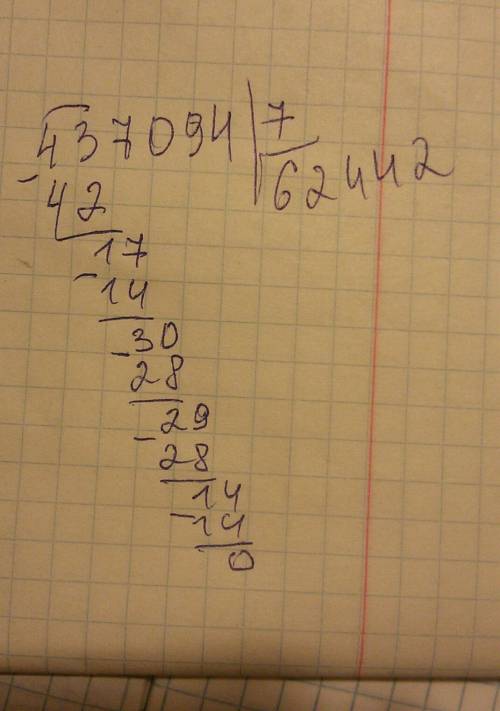 437094 | 7
- 42 62442
17
- 14
30
- 28
29
- 28
14
- 14
0